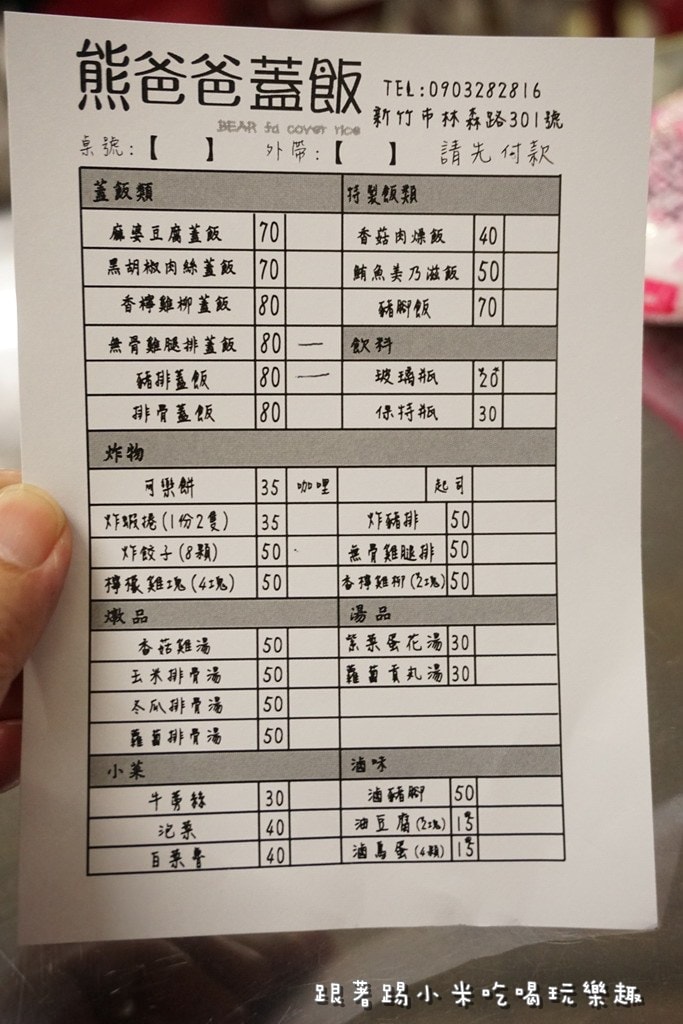 熊爸爸蓋飯 TEL:0903282816
BEAR fa cover rice 新竹市林森路301號
桌號:【 】 外帶:【 】 請先付款
蓋飯類 特製飯類
麻婆豆腐蓋飯 70 香菇肉燥飯 40
黑胡椒肉絲蓋飯 70 鮪魚美乃滋飯 50
香檸雞柳蓋飯 80 豬腳飯 70
無骨雞腿排蓋飯 80 一 飲料
豬排蓋飯 80 一 玻璃瓶 20
排骨蓋飯 80 保特瓶 30
炸物
可樂餅 35 咖哩 起司
炸蝦捲(1份2隻) 35 炸豬排 50
炸餃子(8顆) 50 無骨雞腿排 50
檸檬雞塊(4塊) 50 香檸雞柳(2塊) 50
燉品 湯品
香菇雞湯 50 紫菜蛋花湯 30
玉米排骨湯 50 蘿蔔貢丸湯 30
冬瓜排骨湯 50
蘿蔔排骨湯 50
小菜 滷味
牛蒡絲 30 滷豬腳 50
泡菜 40 油豆腐(2塊) 15
白菜魯 40 滷鳥蛋(4顆) 15
跟著踢小米吃喝玩樂趣